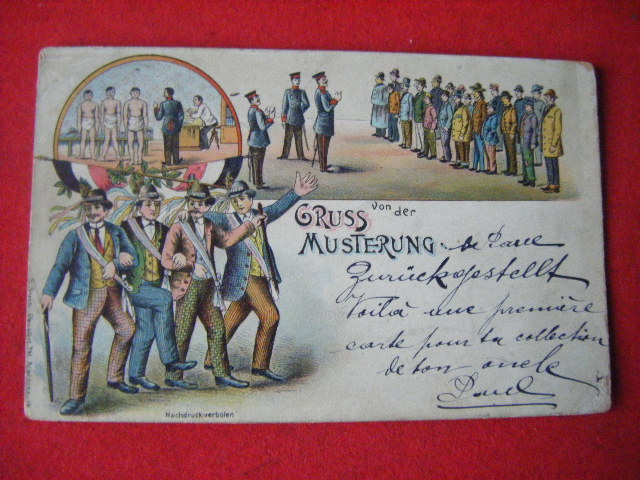 GRUSS von der
MUSTERUNG de Paul
Zurückgestellt
Voilà une première
carte pour ta collection
de ton oncle
Paul
Nachdruck verboten